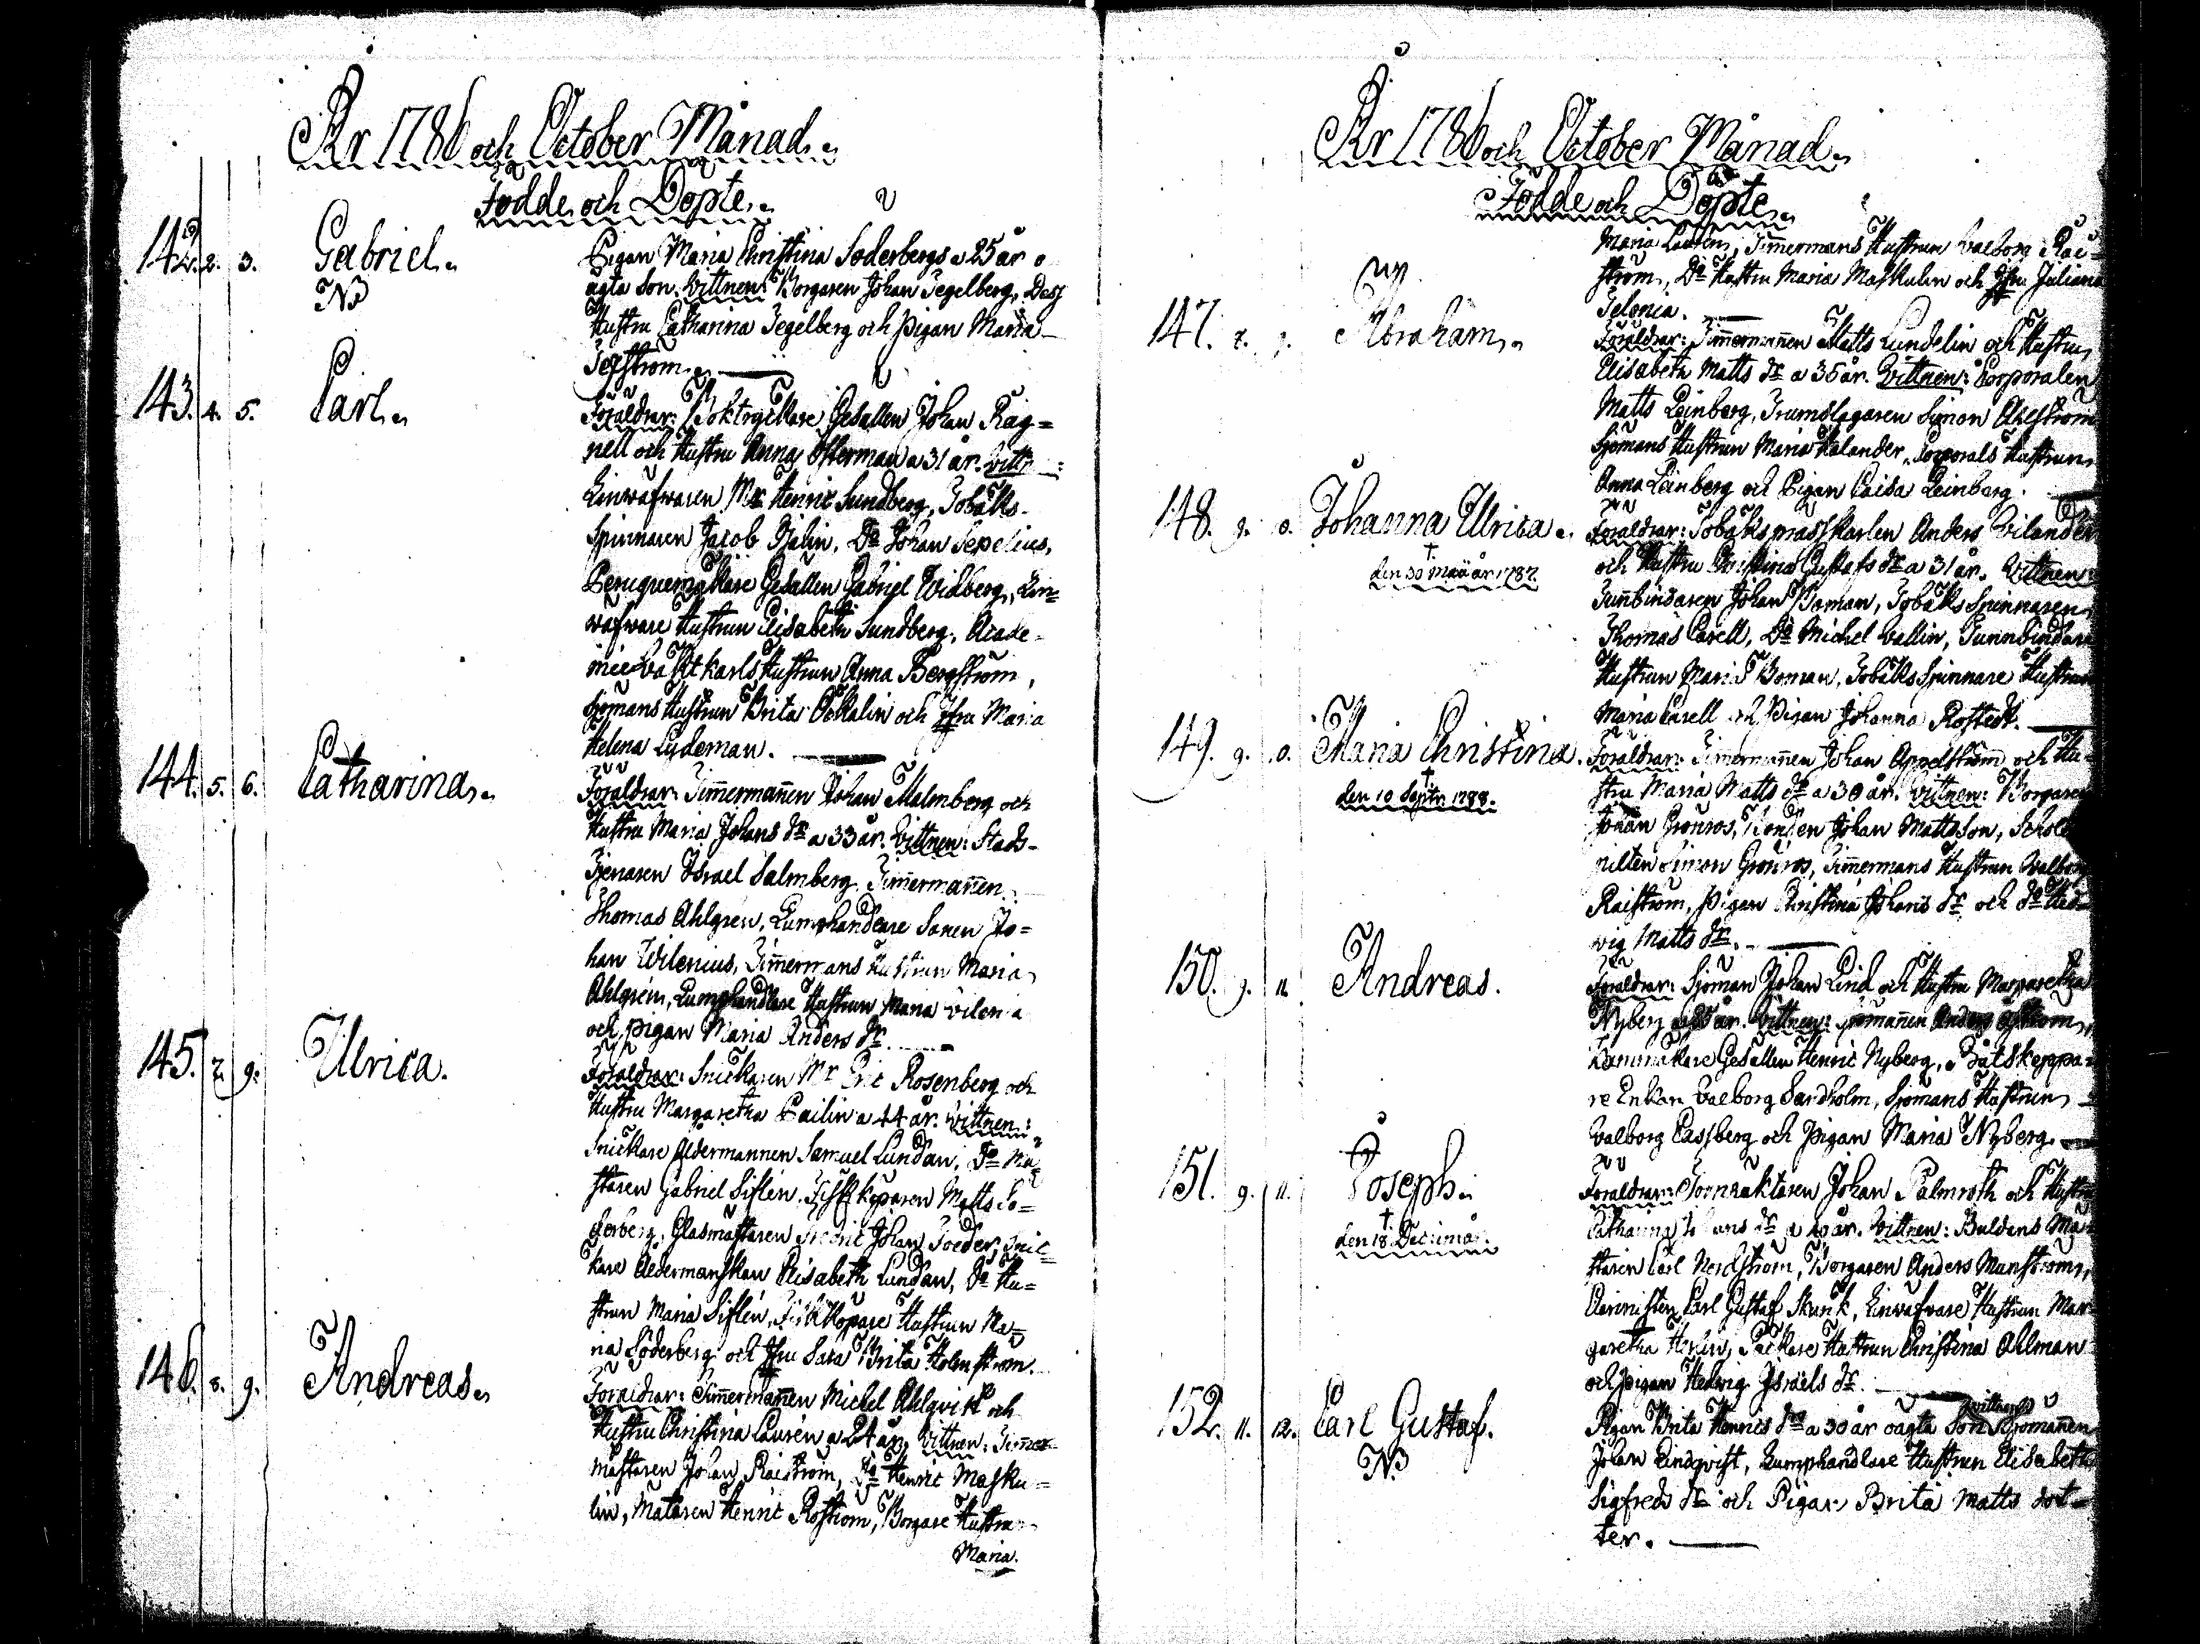 År 1786 och October Månad.
Födde och Döpte.
142. 2. 3. Gabriel.
NB
Pigan Maria Christina Söderbergs a 25 år o
ägta Son. Vittnen: Borgaren Johan Tegelberg, Dess
Hustru Catharina Tegelberg och Pigan Maria
143. 4. 5. Carl.
Föräldrar: Boktryckare Gesällen Johan Rag=
nell och Hustru Anna Österman a 31 år. Vittn:
Linwäfwaren Mr Henric Sundberg, Tobaks
Spinnaren Jacob Hjalin, Do Johan Sepelius,
Peruquemakare Gesällen Gabriel Widberg, Lin=
wäfware Hustrun Elisabeth Sundberg, Acade=
mie Vaktkarls Hustrun Anna Bergström,
Sjömans Hustrun Brita Ockalin och Jfru Maria
Helena Lydeman.
144. 5. 6. Catharina.
Föräldrar: Timermanen Johan Malmberg och
Hustru Maria Johans dr a 33 år. Vittnen: Stads=
Tjenaren Israel Salmberg, Timermanen
Thomas Ahlgren, Lumphandlare Sonen Jo=
han Wilenius, Timermans Hustrun Maria
Ahlgren, Lumphandlare Hustrun Maria Vilenia
och Pigan Maria Anders dr.
145. 7. 9. Ulrica.
Föräldrar: Snickaren Mr Eric Rosenberg och
Hustru Margaretha Cailin a 44 år. Vittnen:
Snickare Åldermannen Samuel Lundan, Do Mä=
staren Gabriel Siflén, Fiskköparen Matts Sö=
derberg, Glasmästaren Johan Soeder, Snic=
kare Åldermanskan Elisabeth Lundan, Do Hu=
strun Maria Siflén, Fiskköpare Hustrun Ma=
ria Söderberg och Jfru Sara Brita Holmström.
146. 8. 9. Andreas.
Föräldrar: Timermanen Michel Ahlqvist och
Hustru Christina Laurén a 24 år. Vittnen: Timer=
mästaren Johan Raiström, Do Henric Masku=
lin, Mätaren Henric Roström, Borgare Hustru
Maria.
År 1786 och October Månad.
Födde och Döpte.
Maria Laurén, Timermans Hustrun Valborg Rai=
ström, Do Hustru Maria Maskulin och Jfru Juliana
147. 7. Abraham.
Föräldrar: Timermanen Matts Lundelin och Hustru
Elisabeth Matts dr a 36 år. Vittnen: Corporalen
Matts Leinberg, Trumslagaren Simon Ahlström
Sjömans Hustrun Maria Kalander, Corporals Hustrun
Anna Leinberg och Pigan Caisa Leinberg.
148. Johanna Ulrica.
†
den 30 Maii år 1787.
Föräldrar: Tobakspresskarlen Anders Vilander
och Hustru Christina Gustafs dr a 31 år. Vittnen:
Tunnbindaren Johan Boman, Tobaks Spinnaren
Thomas Carell, Do Michel Vallin, Tunnbindare
Hustrun Maria Boman, Tobaks Spinnare Hustrun
Maria Carell och Pigan Johanna Rostedt.
149. 9. Maria Christina.
†
den 10 Septr. 1788.
Föräldrar: Timermanen Johan Appelström och Hu=
stru Maria Matts dr a 30 år. Vittnen: Borgaren
Johan Grönros, Bonden Johan Mattsson,
Simon Grönros, Timermans Hustrun Valborg
Raiström, Pigan Christina Johans dr och do Hed=
vig Matts dr.
150. 9. 11. Andreas.
Föräldrar: Sjöman Johan Lind och Hustru Margaretha
Nyberg a 25 år. Vittnen: Sjömanen Anders
Kammakare Gesällen Henric Nyberg, Båtskeppa=
re Enkan Valborg Sandholm, Sjömans Hustrun
Valborg Cassberg och Pigan Maria Nyberg.
151. 9. 11. Joseph.
†
Föräldrar: Johan Palmroth och Hustru
Catharina Johans dr a 40 år. Vittnen: Buldans Mä=
staren Carl Nordström, Borgaren Anders Manström,
Carl Gustaf Skunk, Linwäfware Hustrun Mar=
garetha Packare Hustrun Christina Ahlman
och Pigan Hedwig Israels dr.
152. 11. 12. Carl Gustaf.
NB
Pigan Brita Henrics dr a 30 år oägta Son. Vittnen: Sjömanen
Johan Lindqvist, Lumphandlare Hustrun Elisabeth
Sigfreds dr och Pigan Brita Matts dot=
ter.